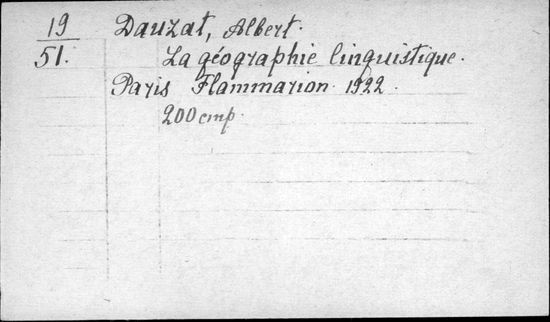 19
51.
Dauzat, Albert.
La géographie linguistique.
Paris Flammarion 1922.
200 стр.